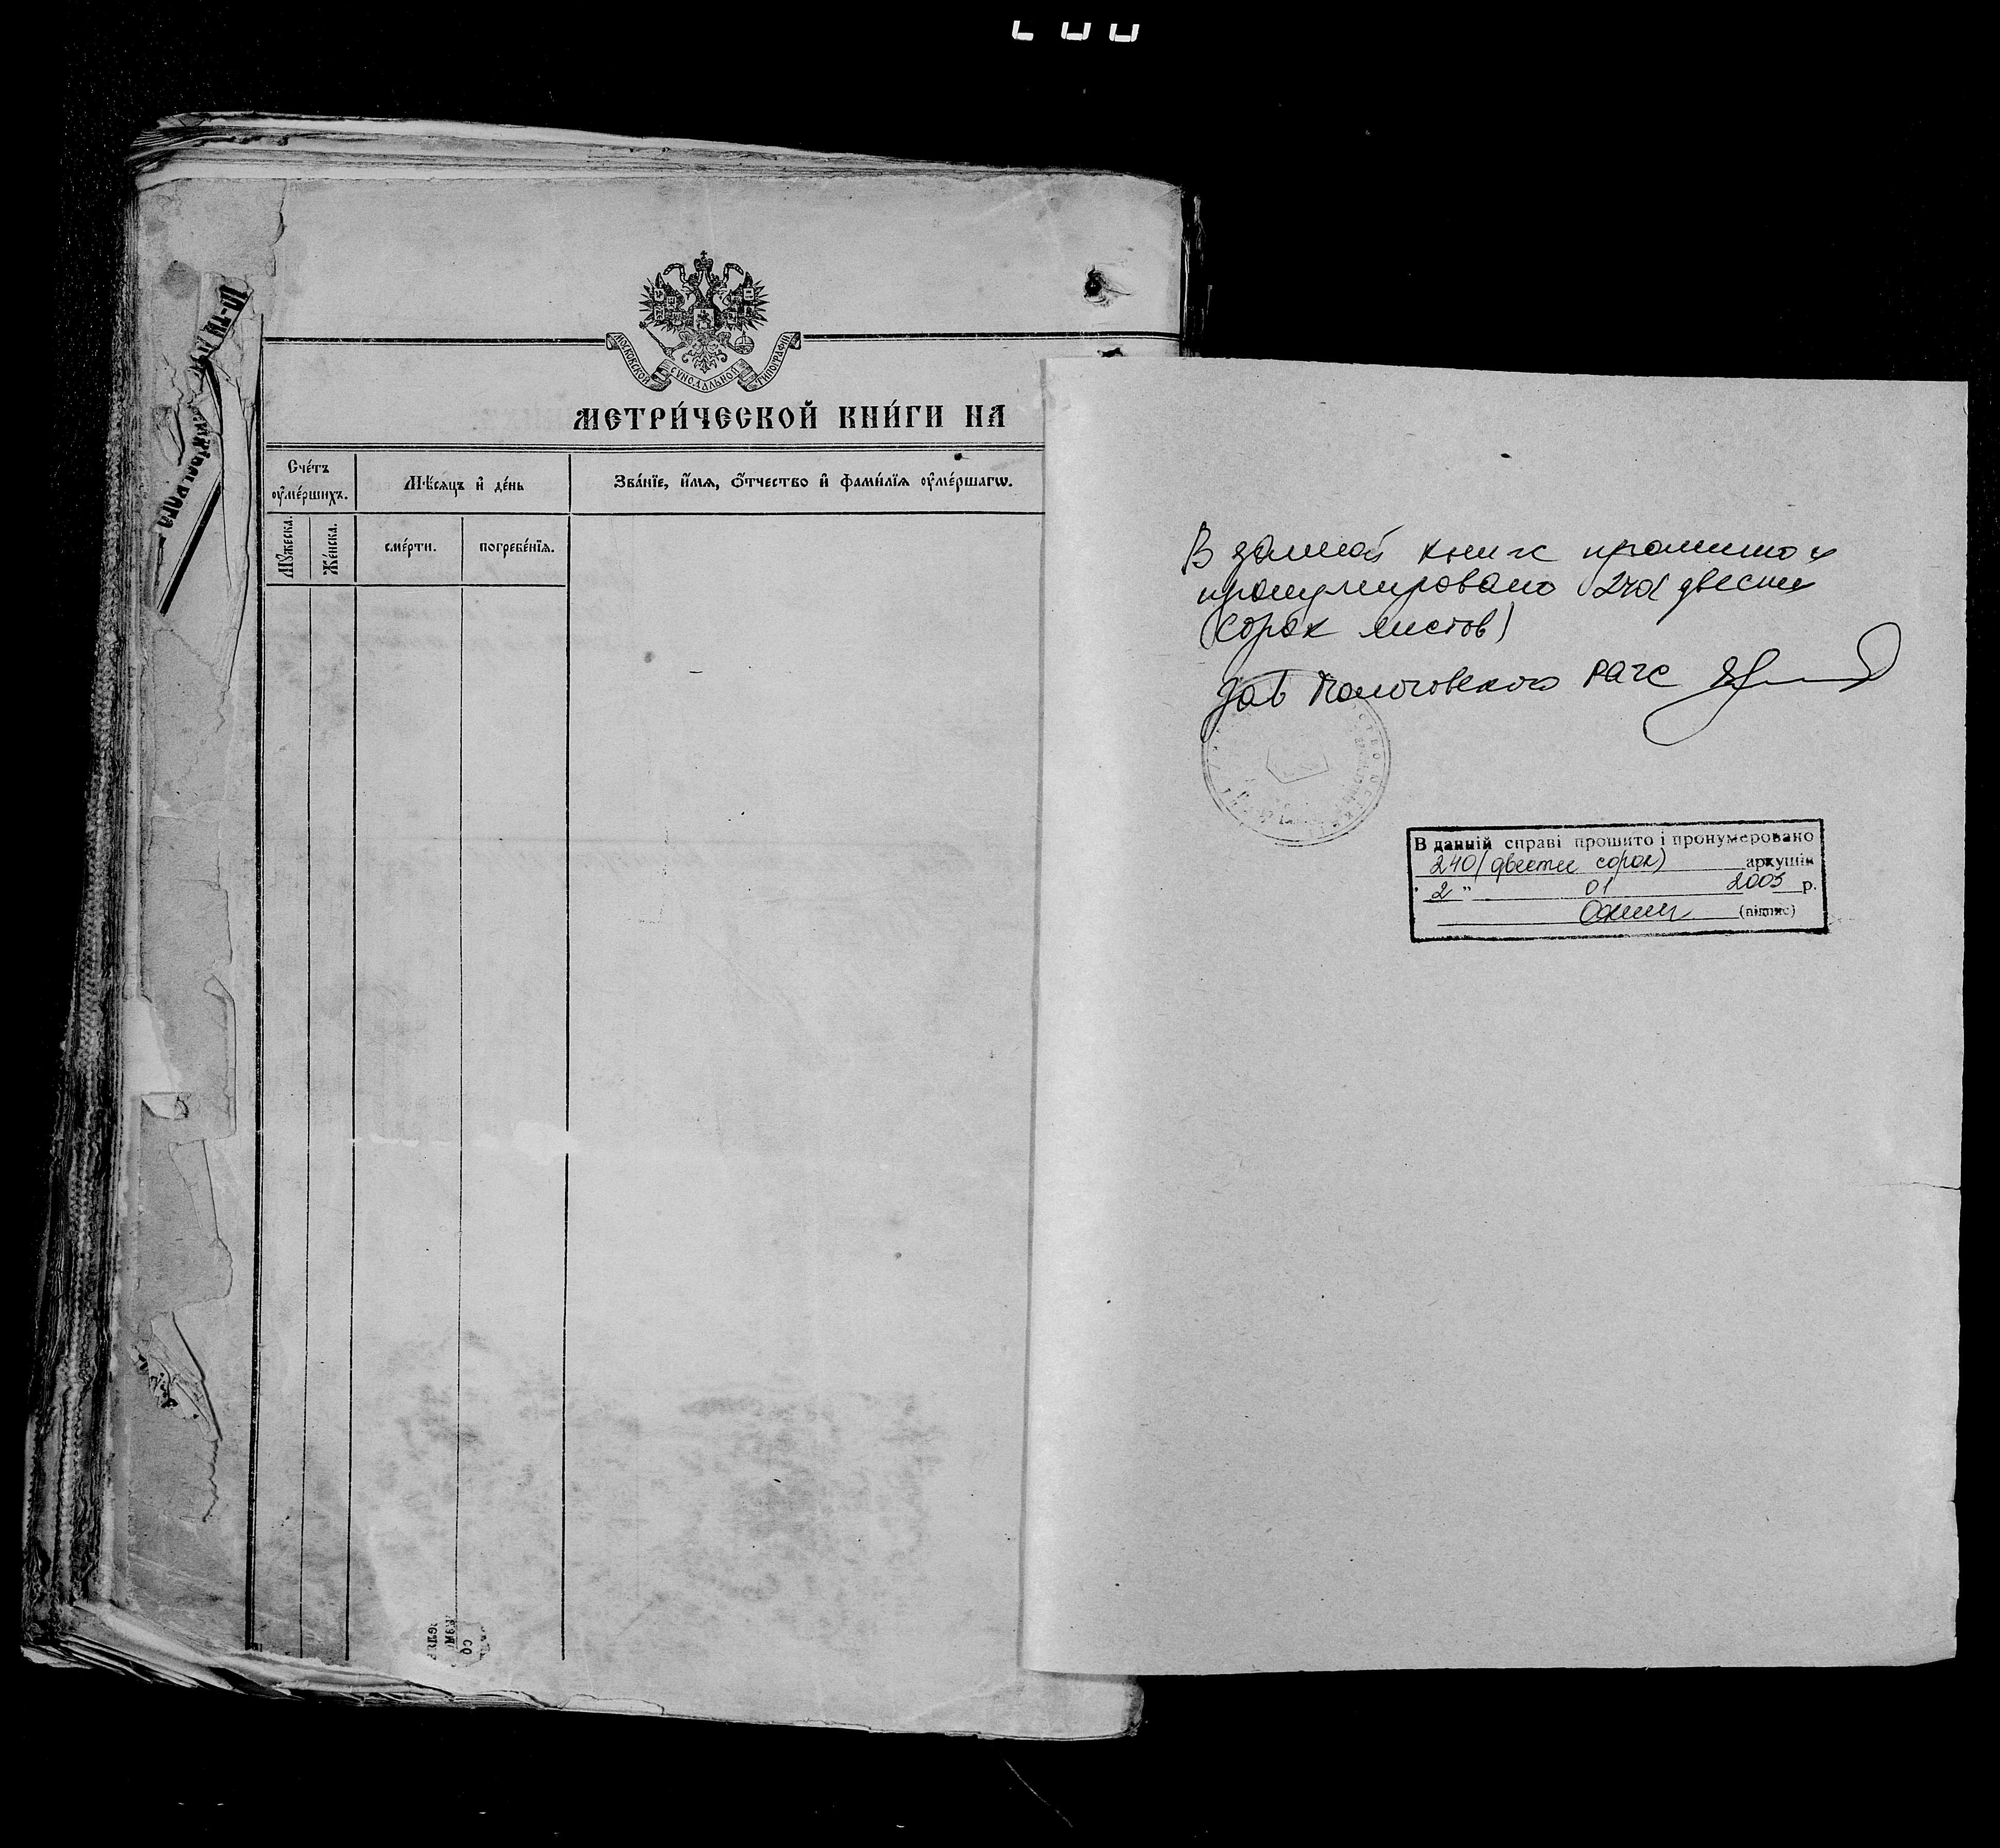 МОСКОВСКОЙ СѴНОДАЛЬНОЙ ТИПОГРАФІИ
МЕТРИ́ЧЕСКОЙ КНИ́ГИ НА
Сче́тъ
оумéршихъ.
Мѣ́сяцъ и҆ де́нь
Зва́нїе, и҆́мѧ, ѻ҆́тчество и҆ фами́лїѧ оу҆ме́ршагѡ.
Мꙋ́жеска.
Же́нска.
сме́рти.
погребе́нїѧ.
В данной книге прошито и
пронумеровано 240 (двести
сорок листов)
Зав Пологовского загс
В данній справі прошито і пронумеровано
240 (двести сорок) аркушів
" 2 " 01 2003 р.
(підпис)